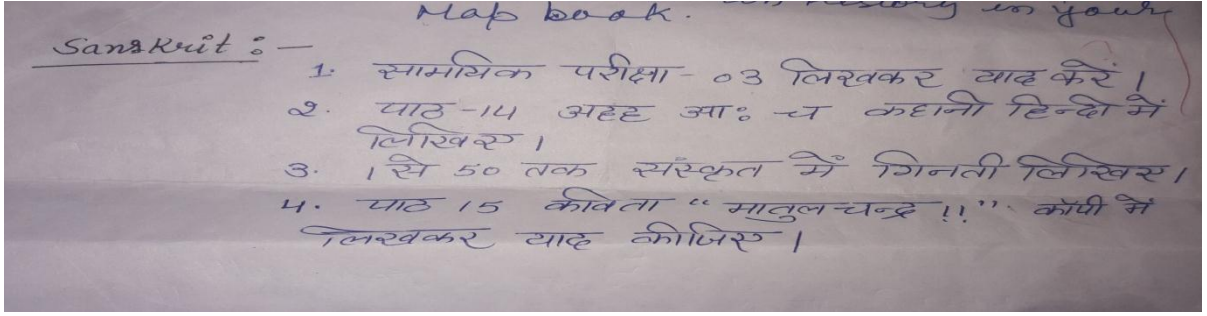 Map book. in your
Sanskrit : —
1. सामयिक परीक्षा - 03 लिखकर याद करें।
2. पाठ -14 अहह आः च कहानी हिन्दी में
लिखिए।
3. 1 से 50 तक संस्कृत में गिनती लिखिए।
4. पाठ 15 कविता “ मातुलचन्द्र !! ” कॉपी में
लिखकर याद कीजिए।